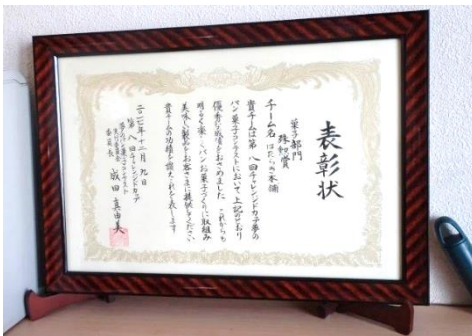 表彰状
菓子部門
殊勲賞
チーム名 はたらき本舗
貴チームは第八回チャレンジドカップ夢の
パン菓子コンテストにおいて上記のとおり
優秀な成績をおさめました これからも
明るく楽しくパンお菓子づくりに取組み
美味しい製品をお客さまに提供してください
貴チームの功績を讃えこれを表します
二〇一七年十二月九日
第八回チャレンジドカップ
夢のパン菓子コンテスト
実行委員会
委員長 成田真由美